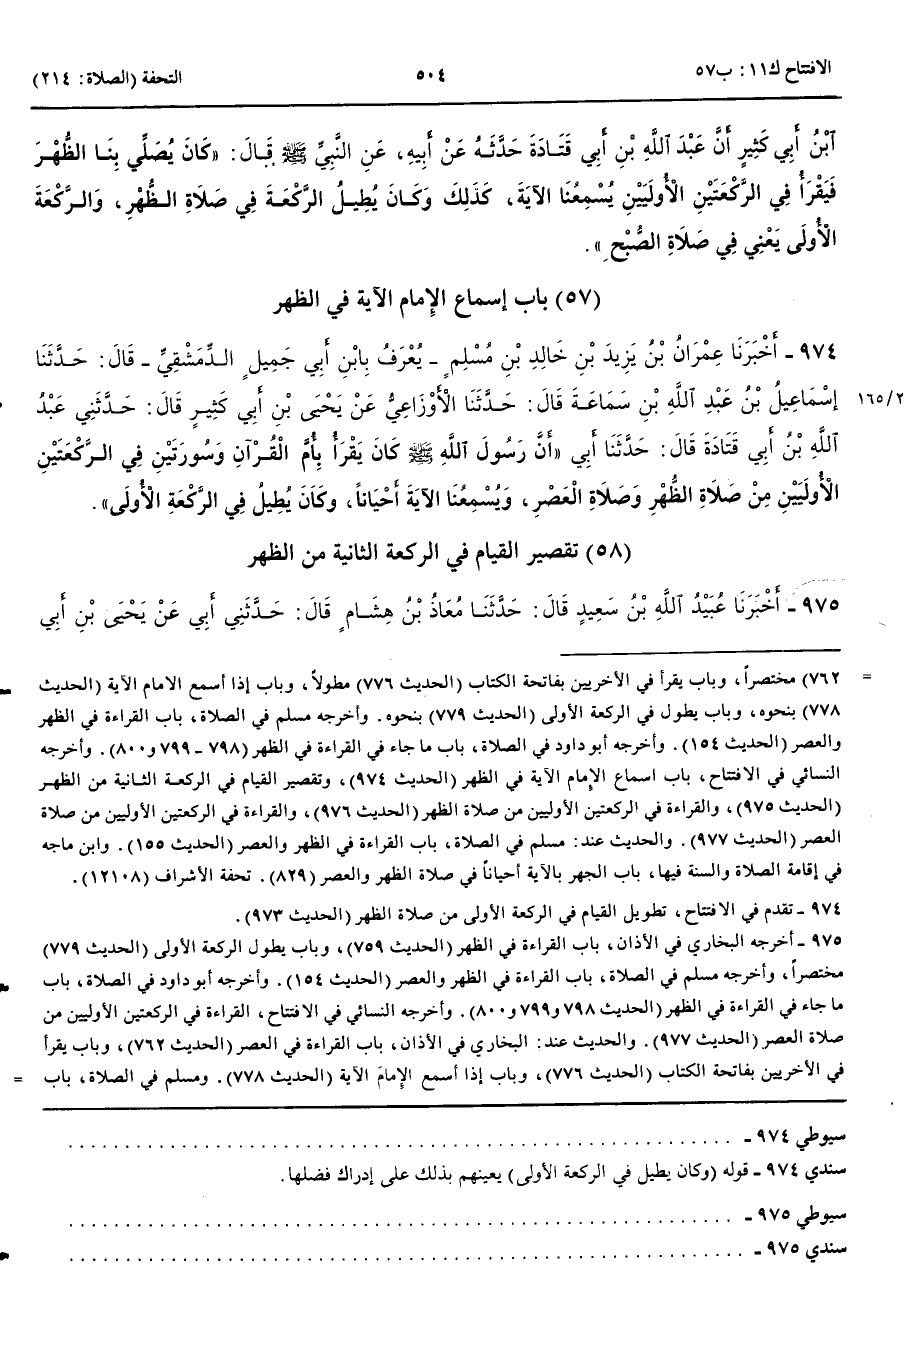 الافتتاح ك١١: ب٥٧ ٥٠٤ التحفة (الصلاة: ٢١٤)
ٱبْنُ أَبِي كَثِيرٍ أَنَّ عَبْدَ ٱللَّهِ بْنِ أَبِي قَتَادَةَ حَدَّثَهُ عَنْ أَبِيهِ، عَنِ النَّبِيِّ ﷺ قَالَ: «كَانَ يُصَلِّي بِنَا الظُّهْرَ
فَيَقْرَأُ فِي الرَّكْعَتَيْنِ الْأُولَيَيْنِ يُسْمِعُنَا الآيَةَ، كَذَلِكَ وَكَانَ يُطِيلُ الرَّكْعَةَ فِي صَلَاةِ الظُّهْرِ، وَالرَّكْعَةَ
الْأُولَى يَعْنِي فِي صَلَاةِ الصُّبْحِ».
(٥٧) باب إسماع الإمام الآية في الظهر
٩٧٤ - أَخْبَرَنَا عِمْرَانُ بْنُ يَزِيدَ بْنِ خَالِدِ بْنِ مُسْلِمٍ - يُعْرَفُ بِابْنِ أَبِي جَمِيلٍ الدِّمَشْقِيِّ - قَالَ: حَدَّثَنَا
إِسْمَاعِيلُ بْنُ عَبْدِ ٱللَّهِ بْنِ سَمَاعَةَ قَالَ: حَدَّثَنَا الْأَوْزَاعِيُّ عَنْ يَحْيَى بْنِ أَبِي كَثِيرٍ قَالَ: حَدَّثَنِي عَبْدُ
١٦٥/٢
ٱللَّهِ بْنُ أَبِي قَتَادَةَ قَالَ: حَدَّثَنَا أَبِي «أَنَّ رَسُولَ ٱللَّهِ ﷺ كَانَ يَقْرَأُ بِأُمِّ الْقُرْآنِ وَسُورَتَيْنِ فِي الرَّكْعَتَيْنِ
الْأُولَيَيْنِ مِنْ صَلَاةِ الظُّهْرِ وَصَلَاةِ الْعَصْرِ، وَيُسْمِعُنَا الآيَةَ أَحْيَاناً، وَكَانَ يُطِيلُ فِي الرَّكْعَةِ الْأُولَى».
(٥٨) تقصير القيام في الركعة الثانية من الظهر
٩٧٥ - أَخْبَرَنَا عُبَيْدُ ٱللَّهِ بْنُ سَعِيدٍ قَالَ: حَدَّثَنَا مُعَاذُ بْنُ هِشَامٍ قَالَ: حَدَّثَنِي أَبِي عَنْ يَحْيَى بْنِ أَبِي
= ٧٦٢) مختصراً، وباب يقرأ في الأخريين بفاتحة الكتاب (الحديث ٧٧٦) مطولاً، وباب إذا أسمع الامام الآية (الحديث
٧٧٨) بنحوه، وباب يطول في الركعة الأولى (الحديث ٧٧٩) بنحوه. وأخرجه مسلم في الصلاة، باب القراءة في الظهر
والعصر (الحديث ١٥٤). وأخرجه أبو داود في الصلاة، باب ما جاء في القراءة في الظهر (٧٩٨ - ٧٩٩ و٨٠٠). وأخرجه
النسائي في الافتتاح، باب اسماع الإمام الآية في الظهر (الحديث ٩٧٤)، وتقصير القيام في الركعة الثانية من الظهر
(الحديث ٩٧٥)، والقراءة في الركعتين الأوليين من صلاة الظهر (الحديث ٩٧٦)، والقراءة في الركعتين الأوليين من صلاة
العصر (الحديث ٩٧٧). والحديث عند: مسلم في الصلاة، باب القراءة في الظهر والعصر (الحديث ١٥٥). وابن ماجه
في إقامة الصلاة والسنة فيها، باب الجهر بالآية أحياناً في صلاة الظهر والعصر (٨٢٩). تحفة الأشراف (١٢١٠٨).
٩٧٤ - تقدم في الافتتاح، تطويل القيام في الركعة الأولى من صلاة الظهر (الحديث ٩٧٣).
٩٧٥ - أخرجه البخاري في الأذان، باب القراءة في الظهر (الحديث ٧٥٩)، وباب يطول الركعة الأولى (الحديث ٧٧٩)
مختصراً، وأخرجه مسلم في الصلاة، باب القراءة في الظهر والعصر (الحديث ١٥٤). وأخرجه أبو داود في الصلاة، باب
ما جاء في القراءة في الظهر (الحديث ٧٩٨ و٧٩٩ و٨٠٠). وأخرجه النسائي في الافتتاح، القراءة في الركعتين الأوليين من
صلاة العصر (الحديث ٩٧٧). والحديث عند: البخاري في الأذان، باب القراءة في العصر (الحديث ٧٦٢)، وباب يقرأ
في الأخريين بفاتحة الكتاب (الحديث ٧٧٦)، وباب إذا أسمع الإمام الآية (الحديث ٧٧٨). ومسلم في الصلاة، باب =
سيوطي ٩٧٤ - ........................................
سندي ٩٧٤ - قوله (وكان يطيل في الركعة الأولى) يعينهم بذلك على إدراك فضلها.
سيوطي ٩٧٥ - ........................................
سندي ٩٧٥ - ........................................